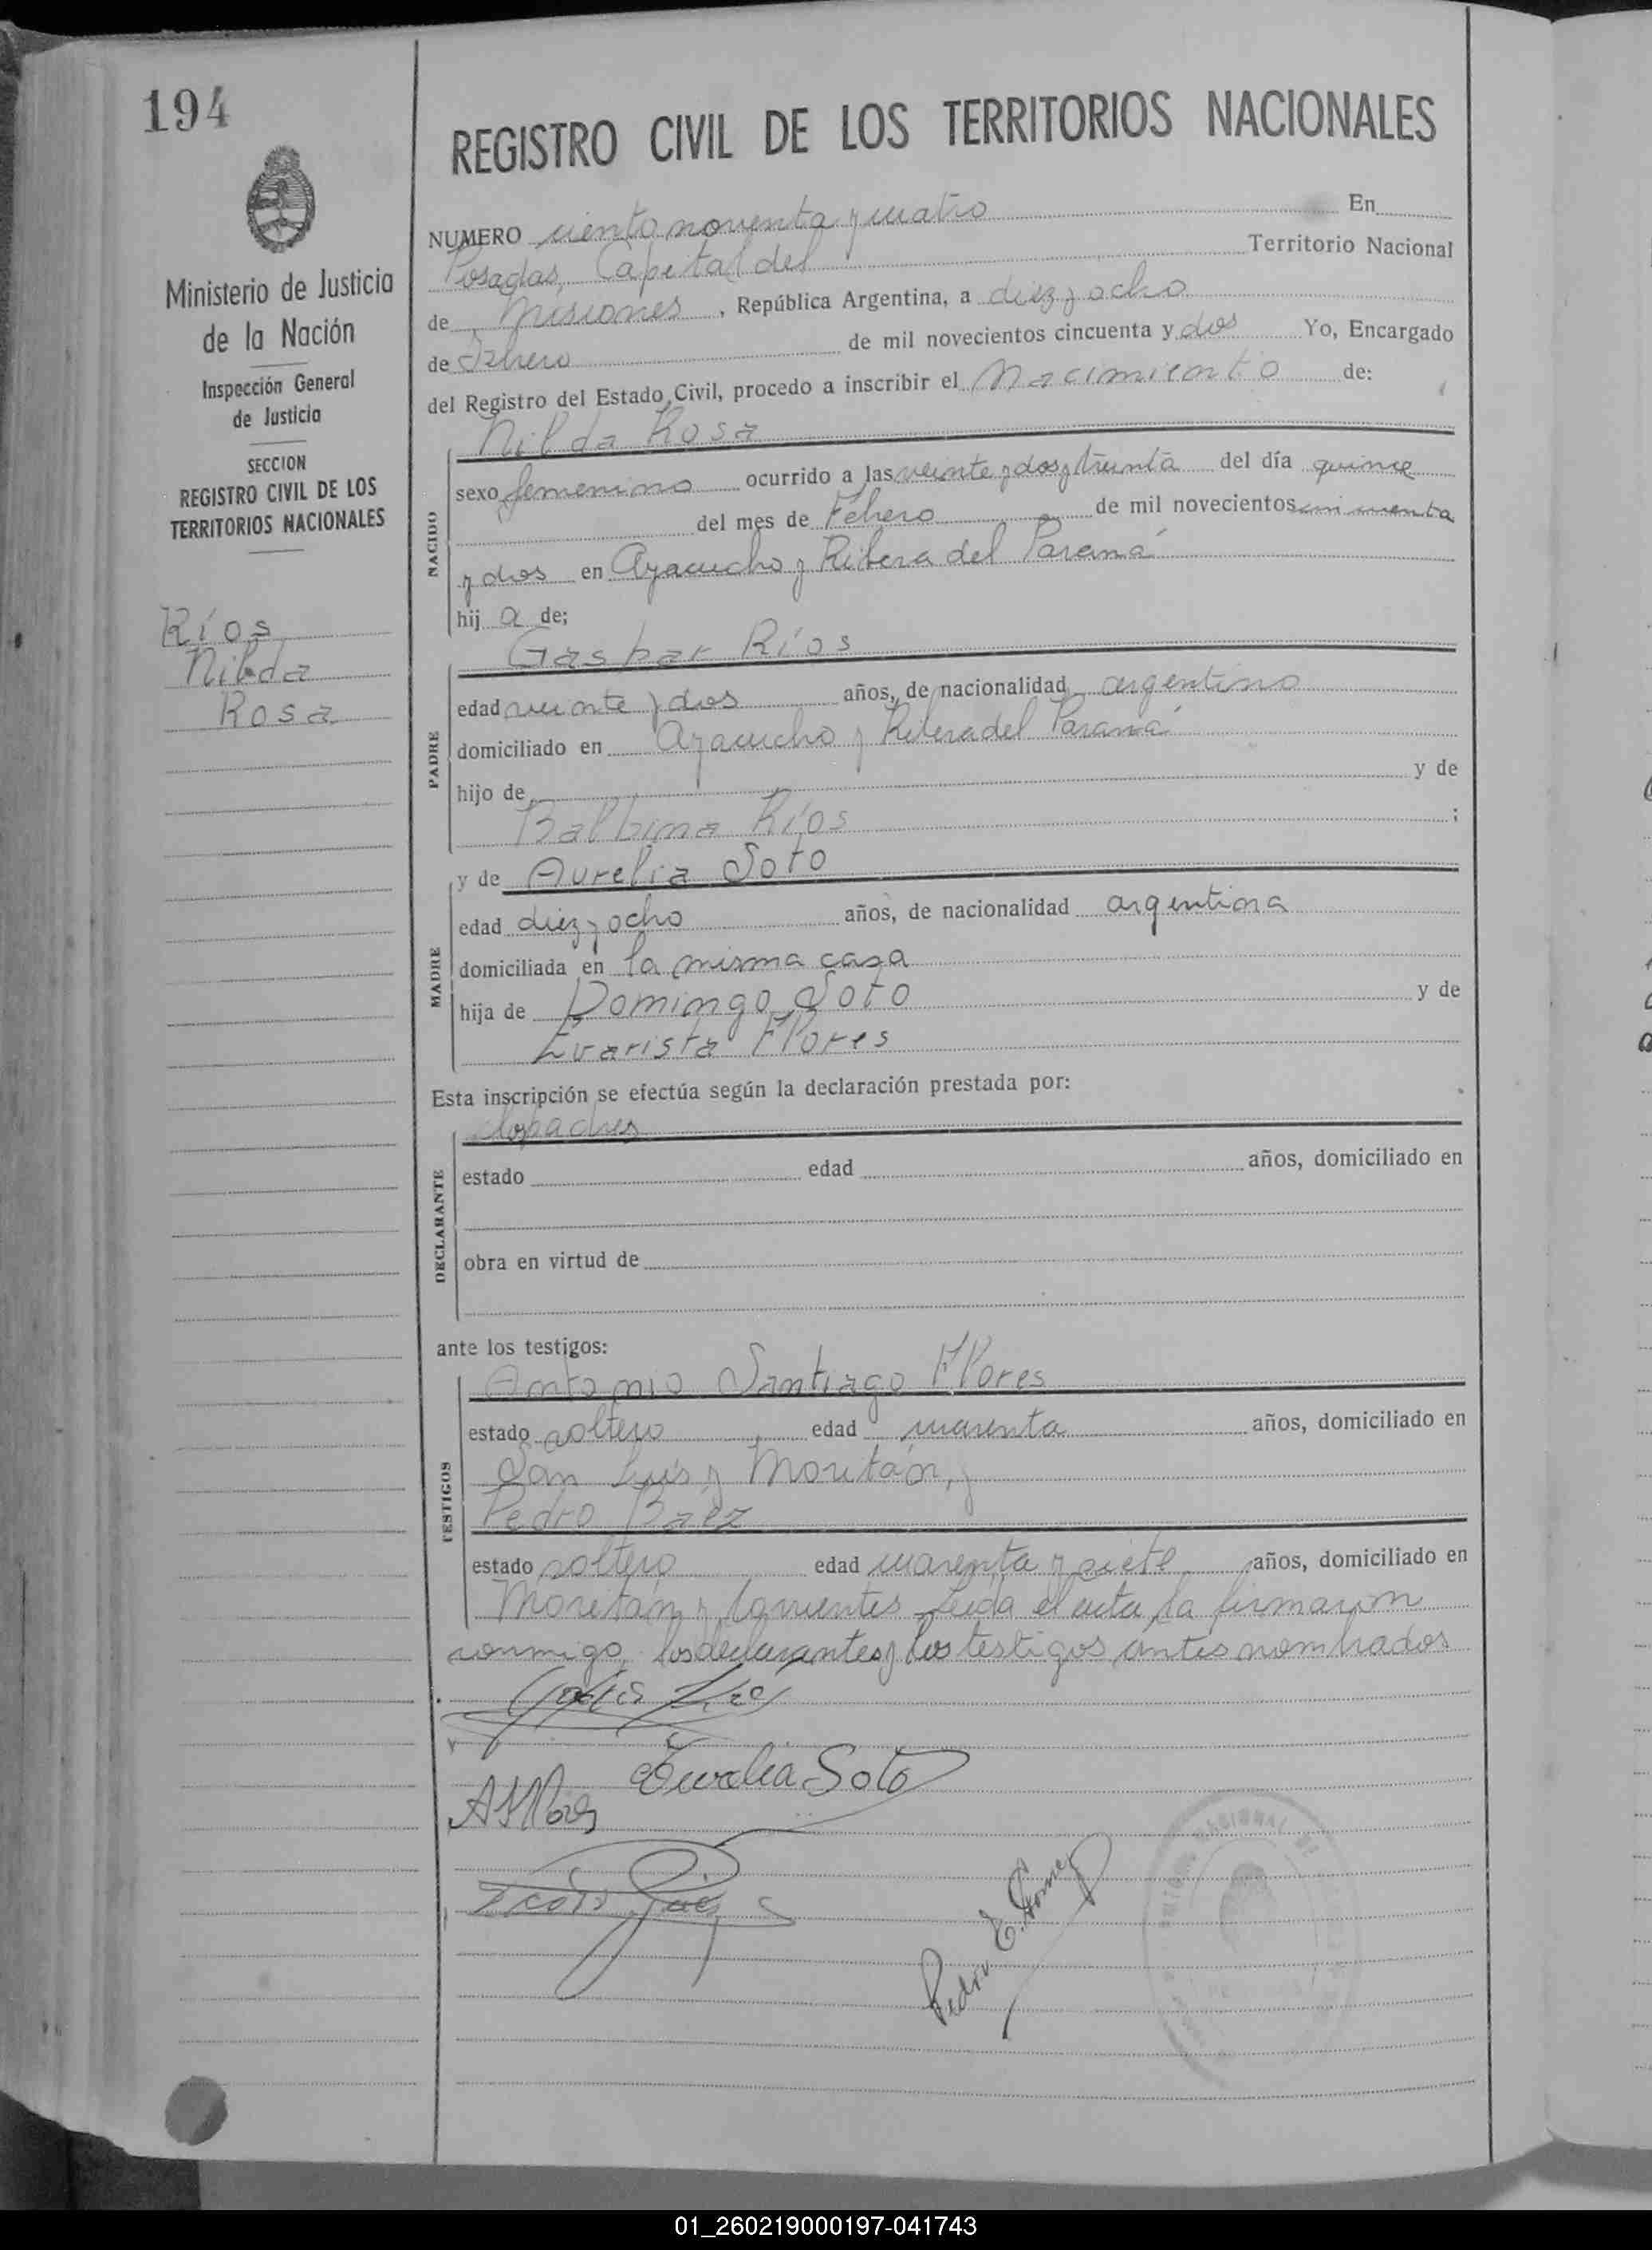 194
Ministerio de Justicia
de la Nación
Inspección General
de Justicia
SECCION
REGISTRO CIVIL DE LOS
TERRITORIOS NACIONALES
Ríos
Nilda
Rosa
REGISTRO CIVIL DE LOS TERRITORIOS NACIONALES
NUMERO ciento noventa y cuatro En
Posadas, Capital del Territorio Nacional
de Misiones, República Argentina, a diez y ocho
de Febrero de mil novecientos cincuenta y dos Yo, Encargado
del Registro del Estado Civil, procedo a inscribir el Nacimiento de:
Nilda Rosa
NACIDO
sexo femenino ocurrido a las veinte y dos y treinta del día quince
del mes de Febrero de mil novecientos cincuenta
y dos en Ayacucho y Ribera del Paraná
hij a de;
Gaspar Ríos
PADRE
edad veinte y dos años, de nacionalidad argentino
domiciliado en Ayacucho y Ribera del Paraná
hijo de y de
Balbina Ríos ;
y de Aurelia Soto
MADRE
edad diez y ocho años, de nacionalidad argentina
domiciliada en la misma casa
hija de Domingo Soto y de
Evarista Flores
Esta inscripción se efectúa según la declaración prestada por:
los padres
DECLARANTE
estado edad años, domiciliado en
obra en virtud de
ante los testigos:
Antonio Santiago Flores
TESTIGOS
estado soltero edad cuarenta años, domiciliado en
San Luis y Moritán, y
Pedro Baez
estado soltero edad cuarenta y siete años, domiciliado en
Moritán y Corrientes Leída el acta, la firmaron
conmigo, los declarantes y los testigos antes nombrados
Aurelia Soto
Pedro E. Gomez
01_260219000197-041743